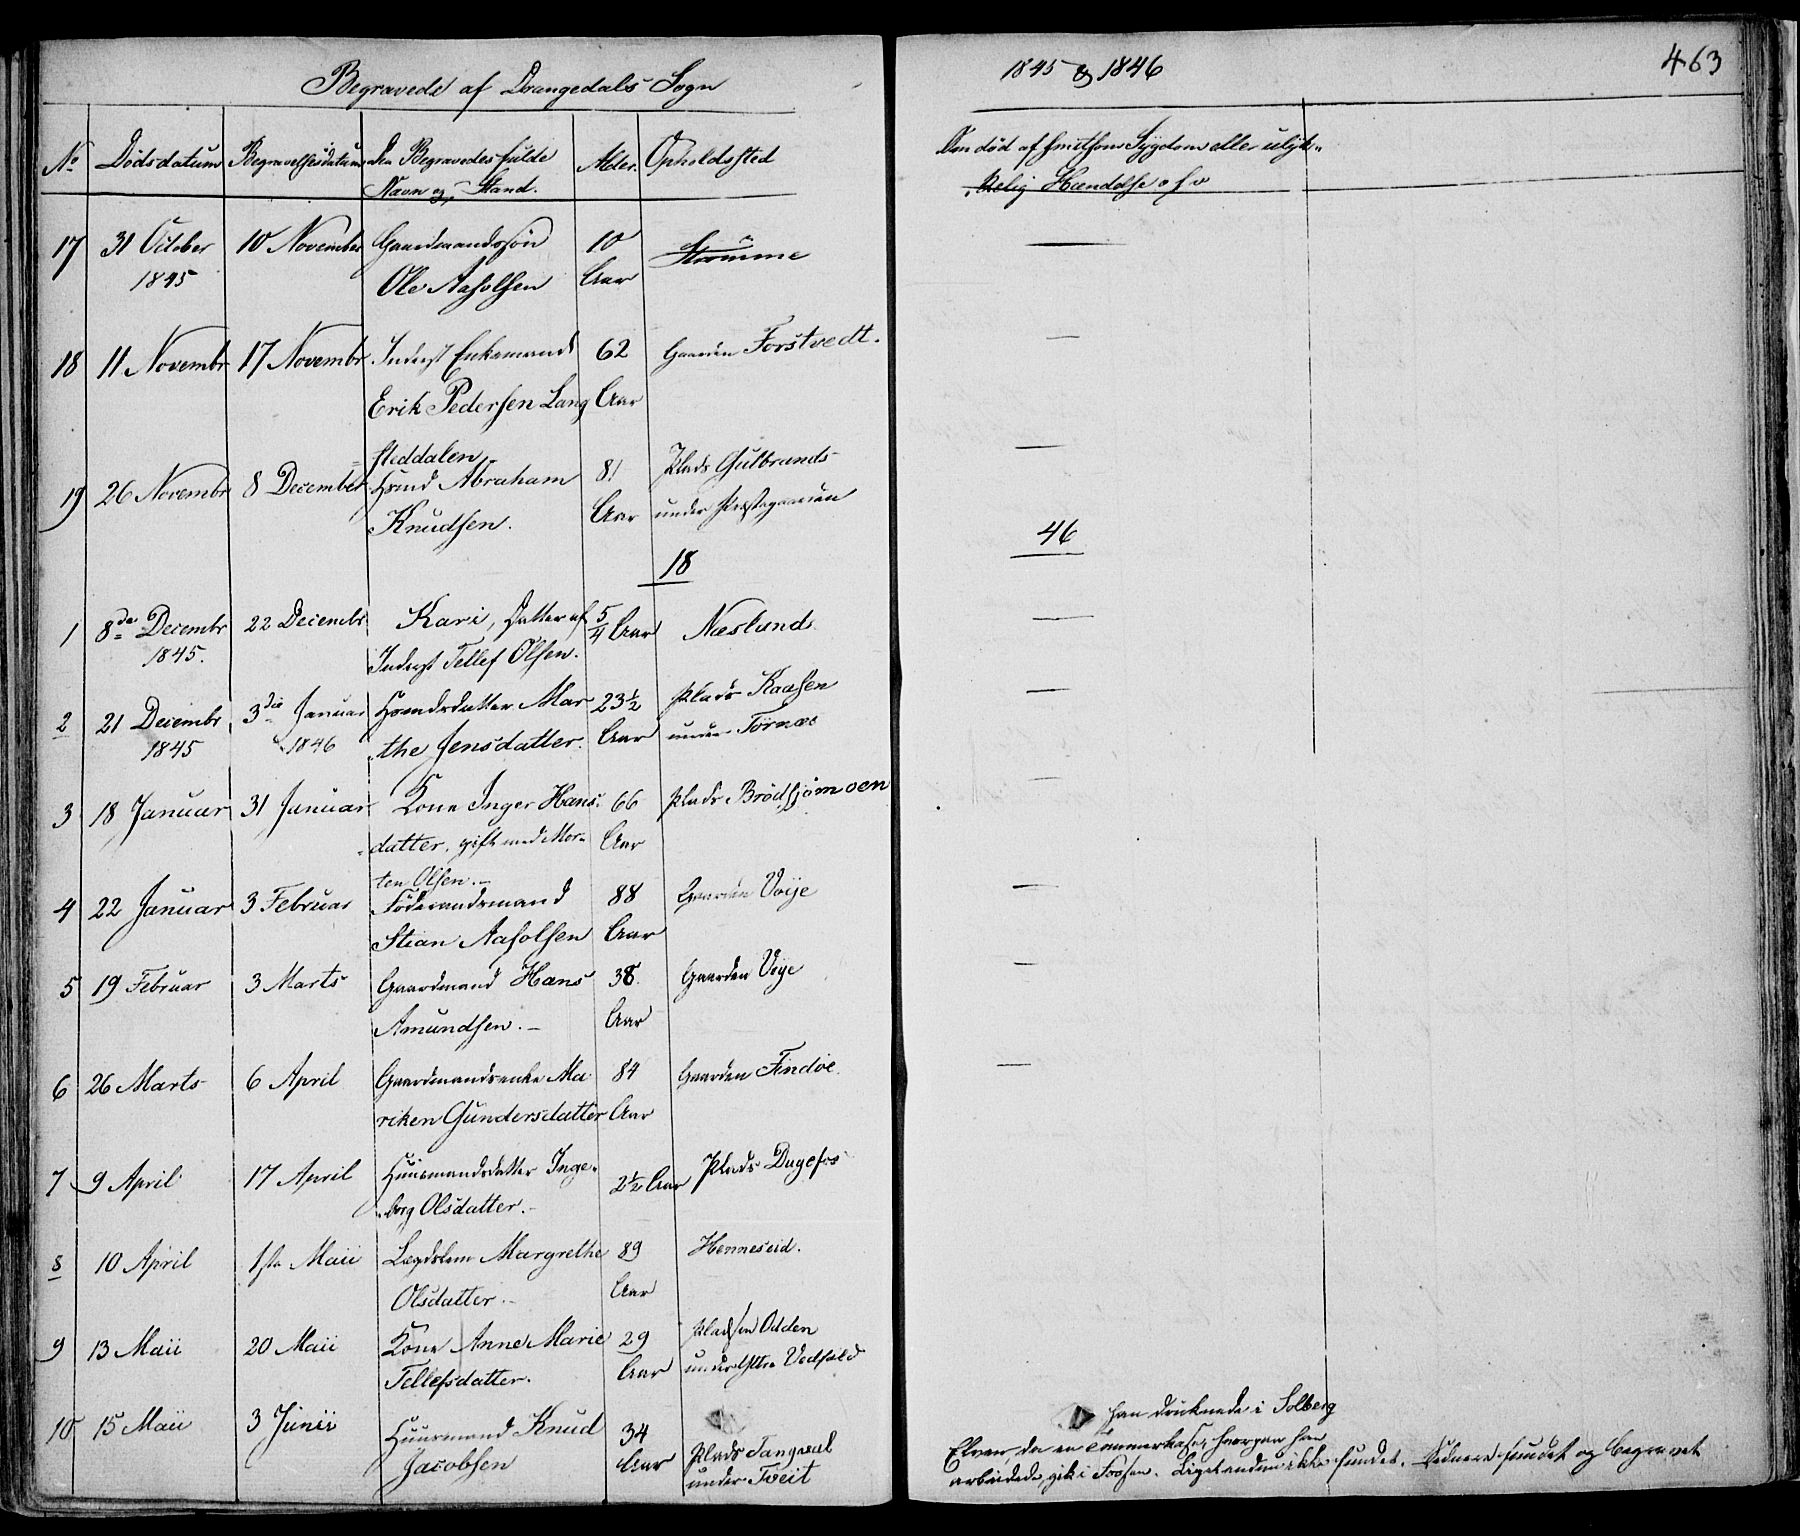 Begravede af Drangedals Sogn
1845 & 1846
463
No Dödsdatum Begravelsesdatum Den Begravedes fulde Navn og Stand. Alder. Opholdssted
Om död af smitsom Sygdom eller ulyk-
kelig Hændelse o s v
17 31 October 10 November Gaardmandssön 10 Strömme
1845 Ole Aasolfsen Aar
18 11 Novembr 17 Novembr Inderst Enkemand 62 Gaarden Forstvedt.
Erik Pedersen Lang Aar
steddalen
19 26 Novembr 8 December Hsmd Abraham 81 Plads Gulbrands-
Knudsen. Aar under Præstegaarden
18
46
1 8de Decembr 22 Decembr Kari, Datter af 5/4 Aar Næslund
1845. Inderst Tellef Olsen.
2 21 Decembr 3die Januar Hsmdsdatter Mar 23½ Plads Kaasen
1845 1846 the Jensdatter. Aar under Tørnæs
3 18 Januar 31 Januar Kone Inger Hans- 66 Plads Brödsjömoen
datter, gift med Mor- Aar
ten Olsen.-
4 22 Januar 3 Februar Föderaadsmand 88 Gaarden Voje
Stian Aasolfsen Aar
5 19 Februar 3 Marts Gaardmand Hans 38 Gaarden Voje
Amundsen.- Aar
6 26 Marts 6 April Gaardmandsenke Ma 84 Gaarden Findöe.
riken Gundersdatter Aar
7 9 April 17 April Huusmandsdatter Inge- 2½ Aar Plads Dugefos
borg Olsdatter.-
8 10 April 1ste Maii Lægdslem Margrethe 89 Henneseid.
Olsdatter.- Aar
9 13 Maii 20 Maii Kone Anne Marie 29 Pladsen Odden
Tellefsdatter. Aar under Ettre Vedfald
10 15 Maii 3 Junii Huusmand Knud 34 Plads Tangval
Jacobsen Aar under Tveit
han druknede i Solberg
Elven, da en Tömmerhase, hvorpaa han
arbeidede, gik i Fossen. Liget endnu ikke fundet. Sednere fundet og begravet